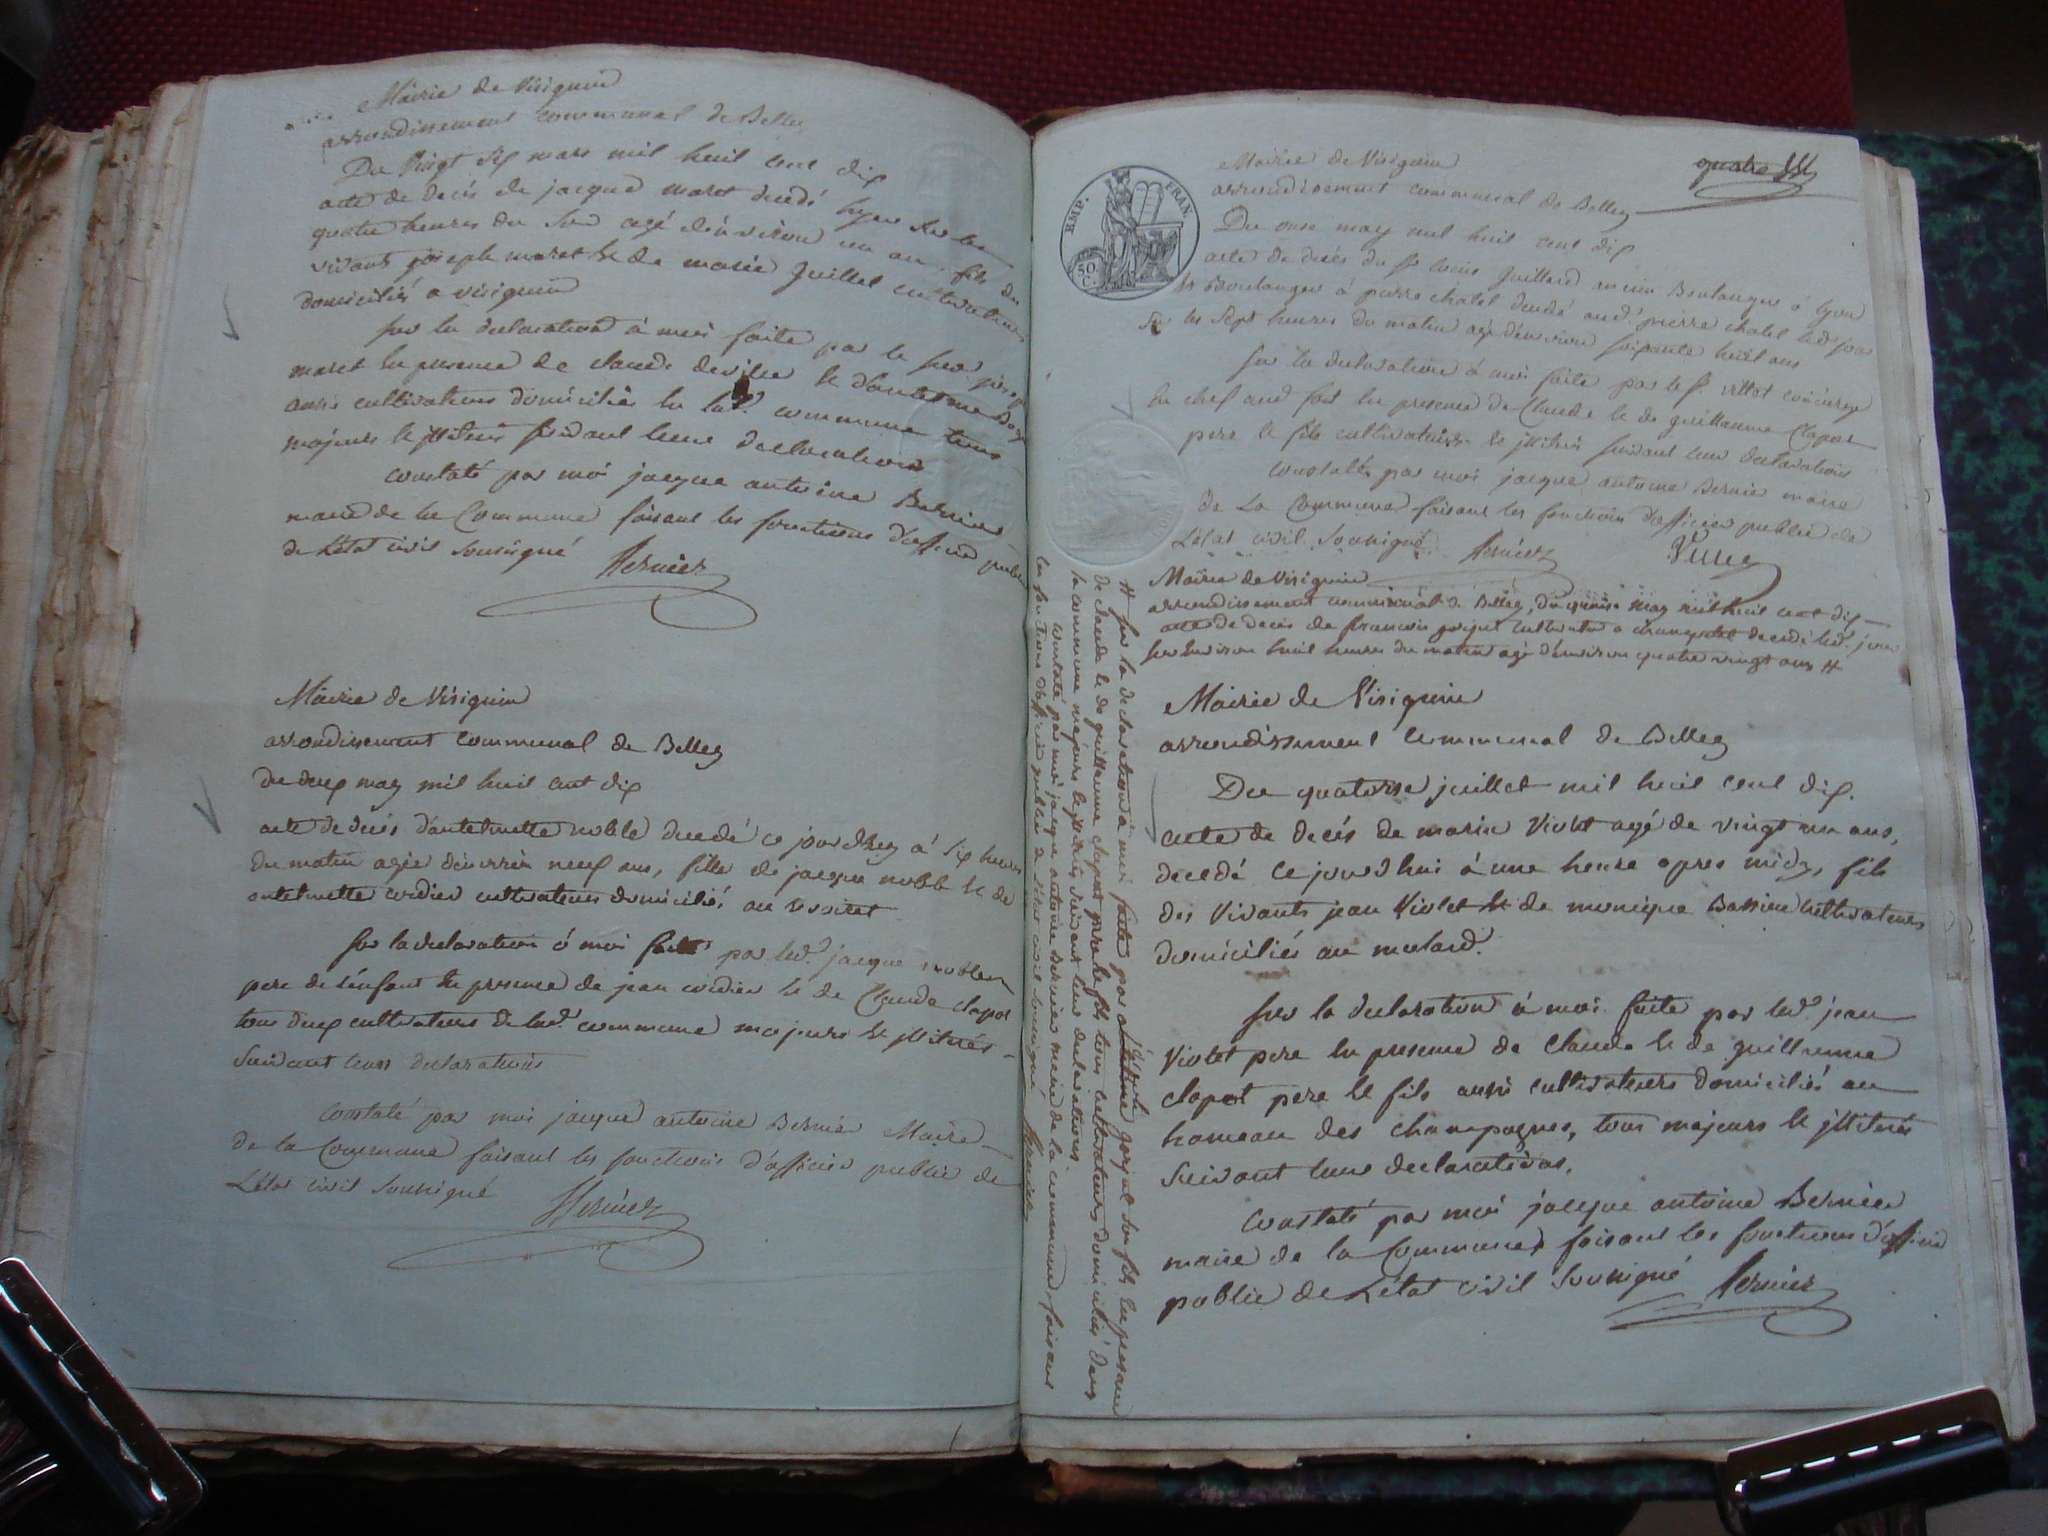 Mairie de Virignin
arrondissement communal de Belley
Du Vingt six mars mil huit cent dix
acte de decés de jacque maret decedé hyer sur les
quatre heures du soir agé d'environ un an, fils des
vivants joseph maret & de marie Guillet cultivateurs
domiciliés a virignin
sur la declaration à moi faite par le sieur joseph
maret en presence de Claude & d'antelme
aussi cultivateurs domiciliés en lad. commune tous
majeurs & jllitérés suivant leurs declarations
constaté par moi jacque antoine Bernier
maire de la Commune faisant les fonctions d'officier public
de L'état civil Soussigné Bernier
Mairie de Virignin
arrondissement communal de Belley
du deux may mil huit cent dix
acte de decés d'antelmette noble decedé ce jourdhuy à six heures
du matin agée d'environ neuf ans, fille de jacque noble & de
antelmette cordier cultivateurs domiciliés au
sur la declaration á moi faite par led. jacque noble
pere de l'enfant en presence de jean cordier & de Claude clapot
tous deux cultivateurs de lad. commune majeurs & jllitérés
suivant leurs declarations
constaté par moi jacque antoine Bernier Maire
de la Commune faisant les fonctions d'officier public de
L'état civil Soussigné Bernier
EMP. FRAN.
50 C.
quatre
Mairie de Virignin
arrondissement communal de Belley
Du onze may mil huit cent dix
acte de decés du sr louis Guillard ancien Boulanger á lyon
& Boulanger á pierre chatel decedé aud. pierre chatel led. jour
sur les sept heures du matin agé d'environ soixante huit ans
sur la declaration á moi faite par le sr
en chef aud. fort en presence de Claude & de guillaume Clapot
pere & fils cultivateurs & jllitérés suivant leur declarations
constaté par moi jacque antoine Bernier maire
de La Commune faisant les fonctions d'officier public de
L'état civil Soussigné Bernier
Mairie de Virignin
arrondissement communal de Belley, du quinze may mil huit cent dix
acte de decés de francois gorjut cultivateur a decedé led. jour
sur environ huit heures du matin agé d'environ quatre vingt ans #
# sur la declaration à moi faite par antoine gorjut son fils en presence
de claude & de guillaume clapot pere & fils tous cultivateurs domiciliés dans
la commune majeurs & jllitérés suivant leurs declarations.
constaté par moi jacque antoine Bernier maire de la commune, faisant
les fonctions d'officier public de l'état civil Soussigné Bernier
Mairie de Virignin
arrondissement communal de Belley
Du quatorse juillet mil huit cent dix.
acte de decés de marin Violet agé de vingt un ans,
decedé ce jourd'hui à une heure apres midy, fils
des Vivants jean Violet & de monique Bassieu cultivateurs
domiciliés au molard.
sur la declaration à moi faite par led. jean
Violet pere en presence de claude & de guillaume
clapot pere & fils aussi cultivateurs domiciliés au
hameau des champagnes, tous majeurs & jllitérés
suivant leurs declarations.
constaté par moi jacque antoine Bernier
maire de la Commune, faisant les fonctions d'officier
public de L'état civil Soussigné Bernier